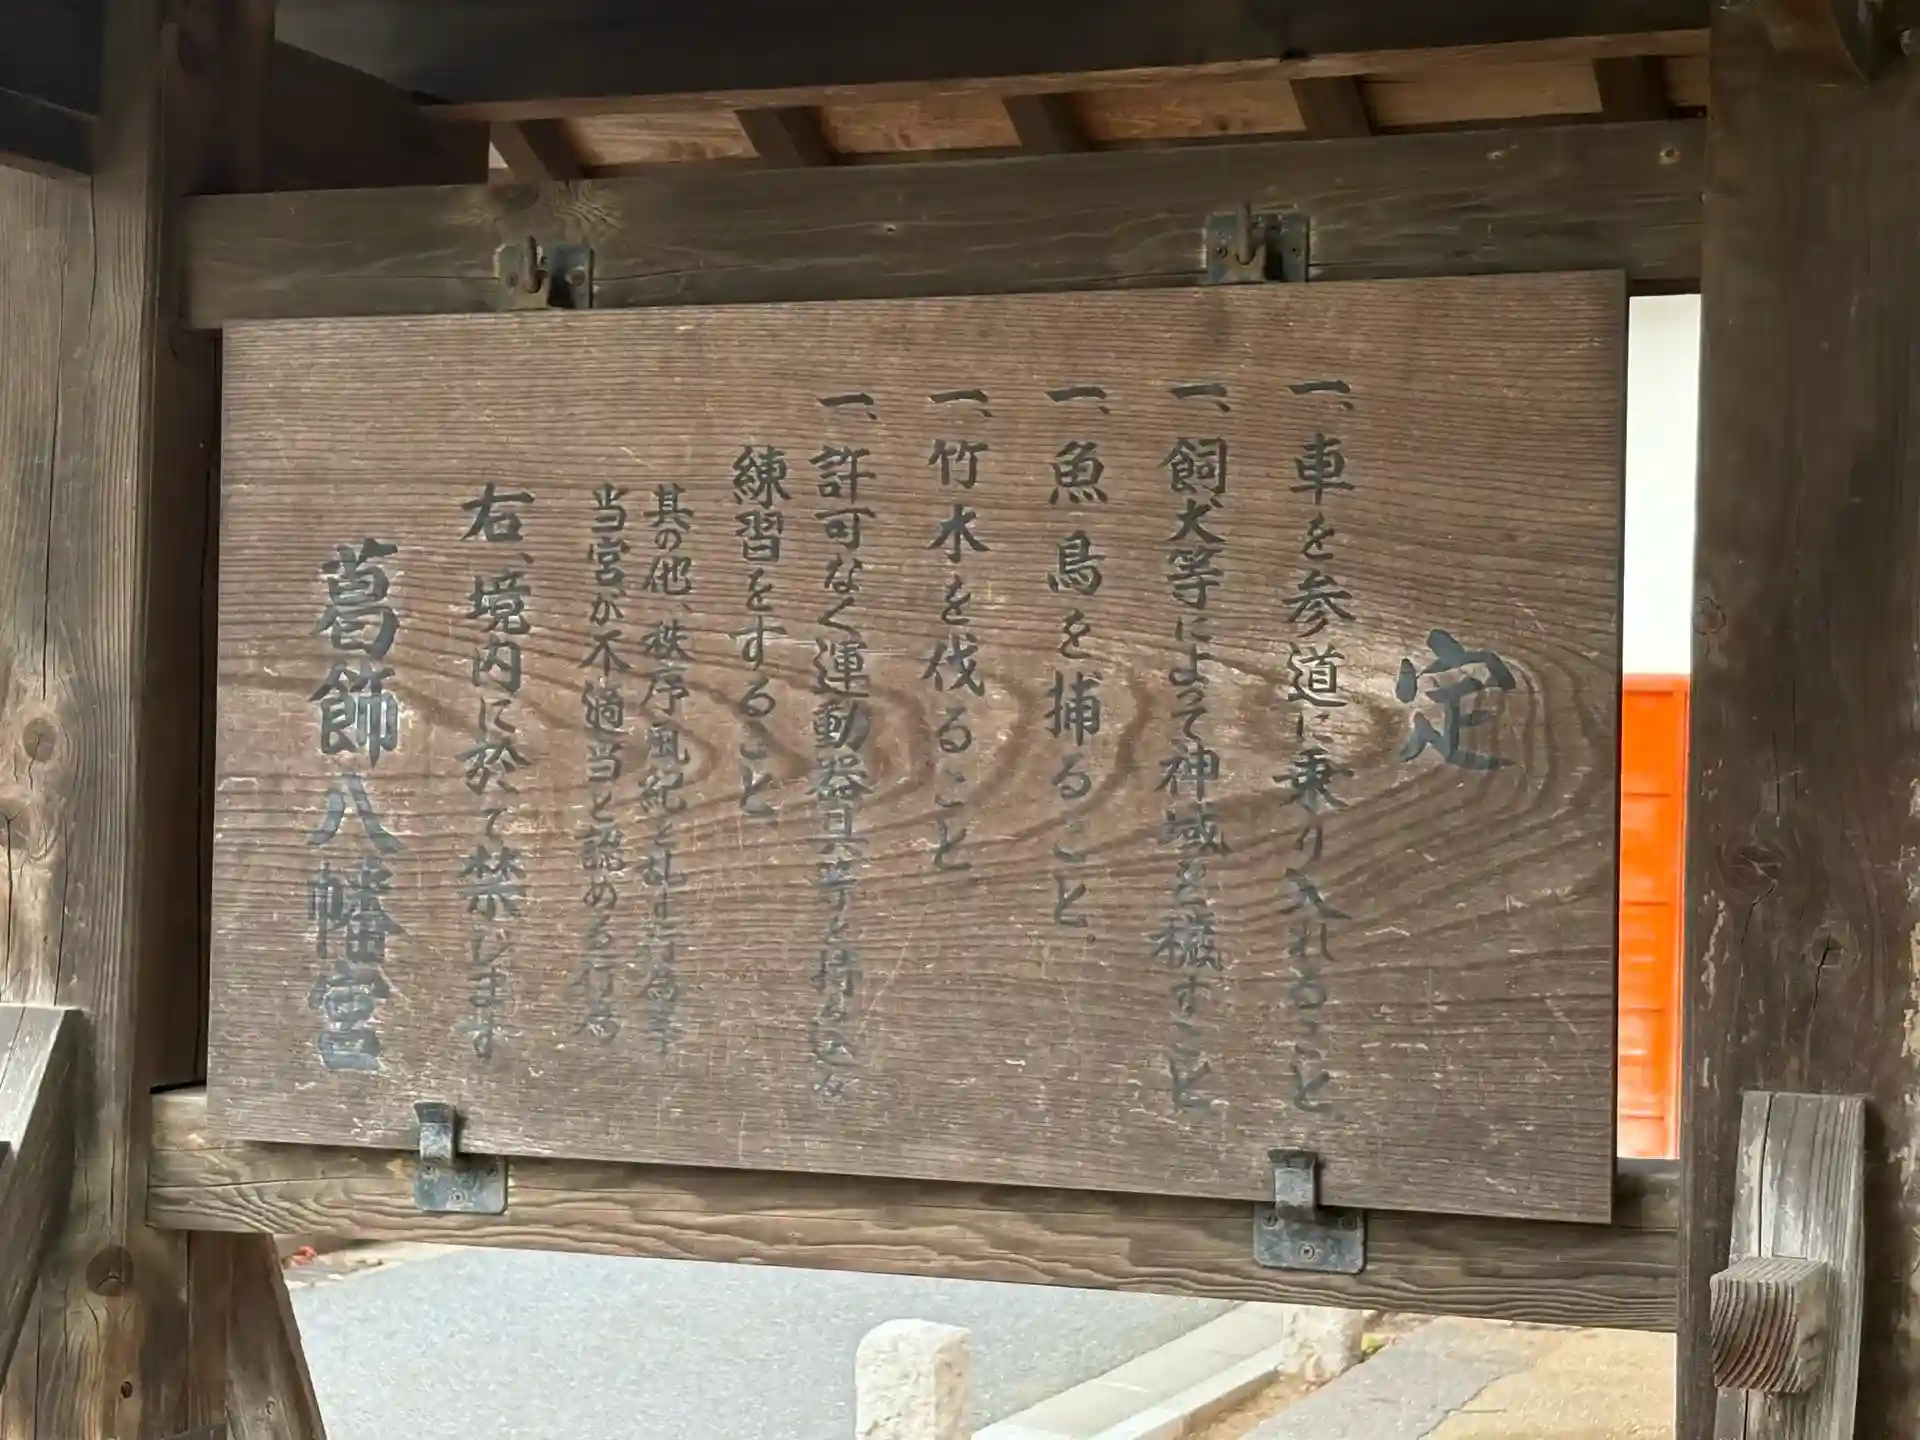 定
一、車を参道に乗り入れること
一、飼犬等によって神域を穢すこと
一、魚鳥を捕ること
一、竹木を伐ること
一、許可なく運動器具等を持ち込み
練習をすること
其の他、秩序風紀を乱す行為等
当宮が不適当と認める行為
右、境内に於て禁じます
葛飾八幡宮